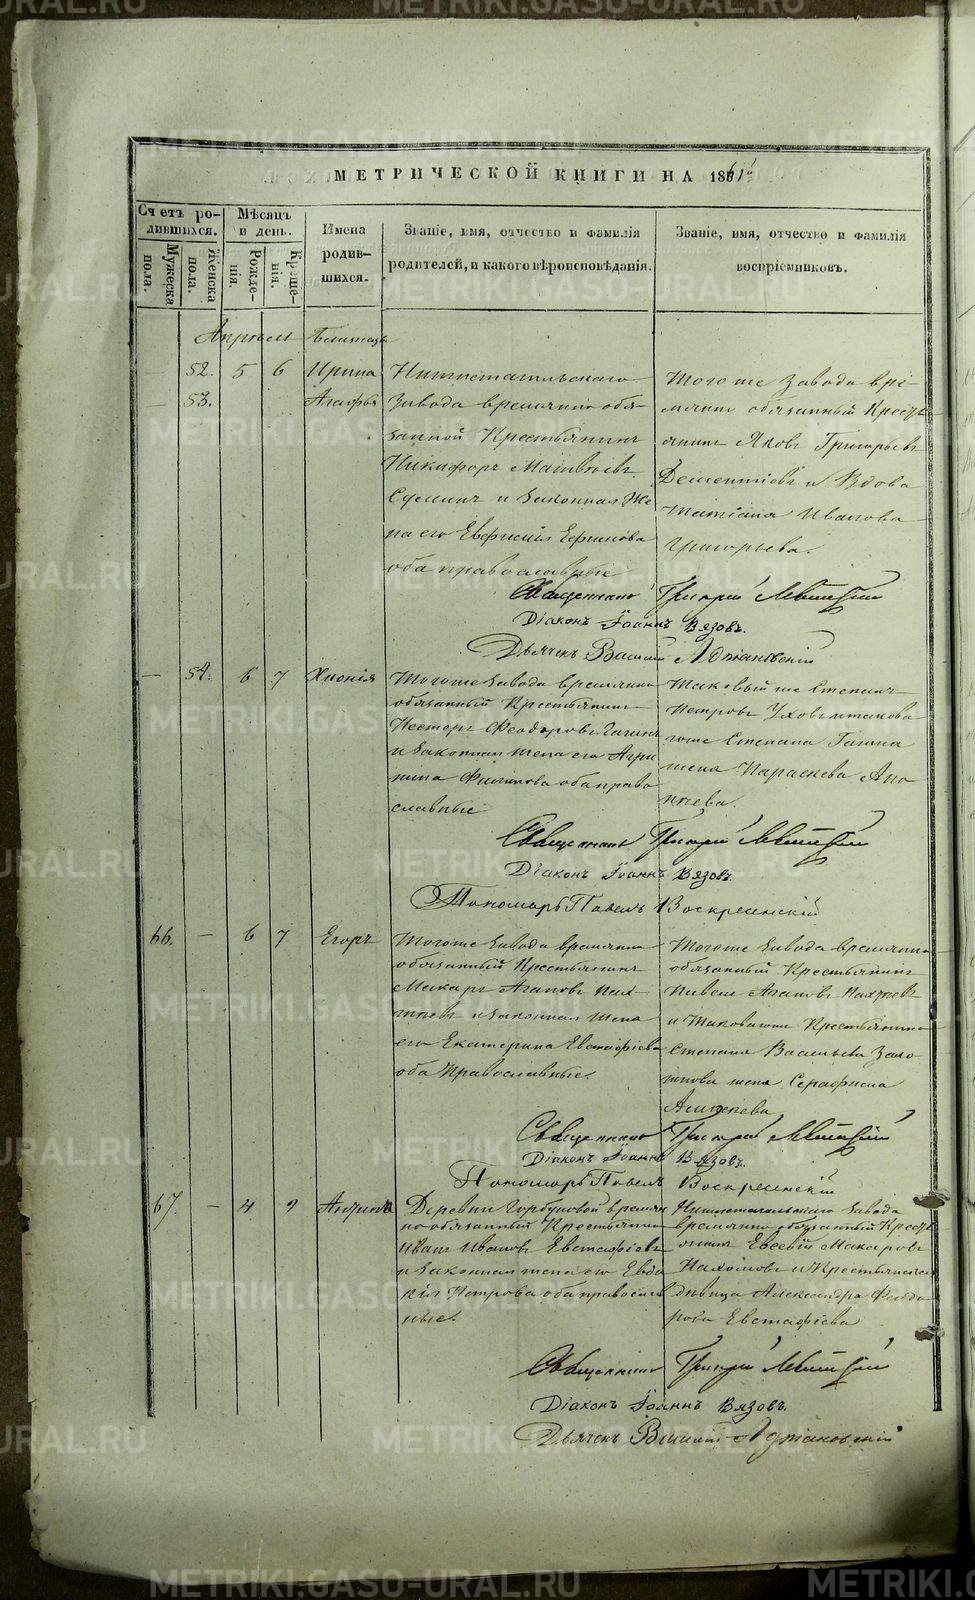 МЕТРИЧЕСКОЙ КНИГИ НА 1861
Счетъ родившихся.
Мѣсяцъ и день.
Имена родившихся.
Званіе, имя, отчество и фамилія родителей, и какого вѣроисповѣданія.
Званіе, имя, отчество и фамилія воспріемниковъ.
Мужеска пола.
Женска пола.
Рожденія.
Крещенія.
Апрѣль
52. 5 6 Ирина
53. Агафья
Завода временно обя-
занной Крестьянинъ
Никифоръ Матвѣевъ
и законная же
на его Ефимова
оба православные
Того же завода вре-
менно обязанный Кресть
янинъ Яковъ Григорьевъ
Дементіевъ и Вдова
Татіана Иванова
Григорьева.
Священникъ Григорій
Діаконъ Іоаннъ Вязовъ.
Дьячекъ Василій
54. 6 7 Хионія
Тогоже завода временно
обязанный Крестьянинъ
Несторъ Феодоровъ
и законная жена его Агри
пина Филипова оба право
славные
Таковый же Степанъ
Петровъ
Степана
жена Параскева
Священникъ Григорій
Діаконъ Іоаннъ Вязовъ.
Пономарь Павелъ Воскресенскій
66. — 6 7 Егоръ
Тогоже завода временно
обязанный Крестьянинъ
Макаръ Агаповъ
и законная жена
его Екатерина Евстафіева
оба Православные.
Тогоже завода временно
обязанный Крестьянинъ
Павелъ Агаповъ
и Таковагоже Крестьянина
Степана Васильева
жена Серафима
Священникъ Григорій
Діаконъ Іоаннъ Вязовъ.
Пономарь Павелъ Воскресенскій
67. — 4 9
Деревни Горбуновой времен
но обязанный Крестьянинъ
Иванъ Ивановъ Евстафіевъ
и законная жена его Евдо
кія Петрова оба православ
ные.
Нижнетагильскаго завода
временно обязанный Кресть
янинъ Евсевій Макаровъ
и Крестьянская
дѣвица Александра Феодо
рова Евстафіева
Священникъ Григорій
Діаконъ Іоаннъ Вязовъ.
Дьячекъ Василій
METRIKI.GASO-URAL.RU